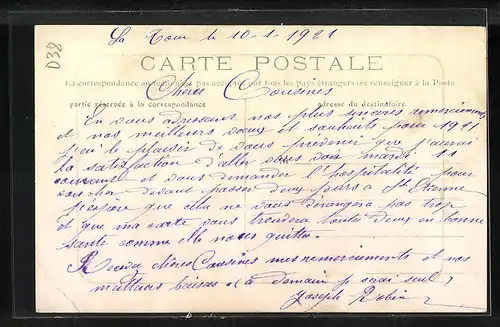 La Tour le 10-1-1921
D38
CARTE POSTALE
La correspondance au recto n'est pas acceptée par tous les pays étrangers (se renseigner à la Poste
Chères Cousines
partie réservée à la correspondance adresse du destinataire
En vous adressant nos plus sincères remerciements
et nos meilleurs vœux et souhaits pour 1921
j'ai le plaisir de vous prévenir que j'aurai
la satisfaction d'aller vous voir mardi 11
courant et vous demander l'hospitalité pour
coucher devant passer deux jours à St Etienne
j'espère que cela ne vous dérangera pas trop
et que ma carte vous trouvera toutes deux en bonne
santé comme elle nous quitte.
Recevez chères Cousines mes remerciements et nos
meilleurs baisers (à demain je serai seul)
Joseph Robin